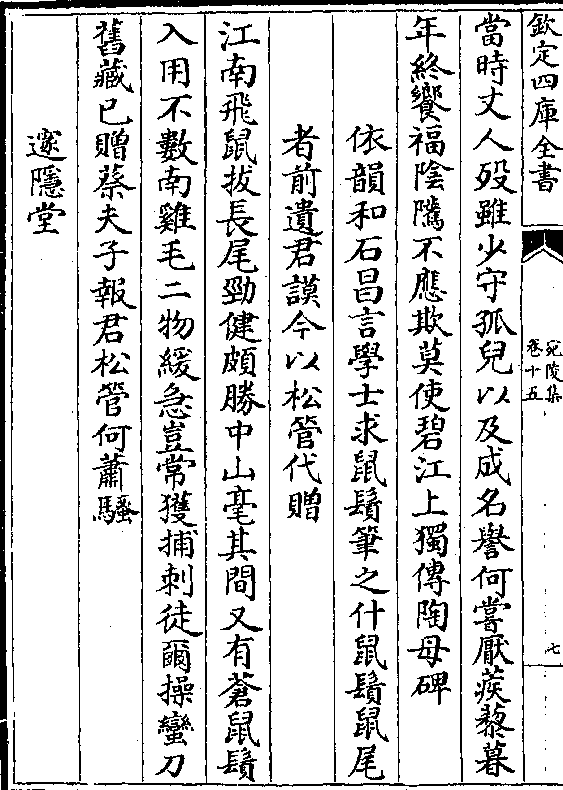 欽定四庫全書
宛陵集
卷十五
七
當時丈人歿雖少守孤兒以及成名譽何嘗厭蒺藜暮
年終饗福陰隲不應欺莫使碧江上獨傳陶母碑
依韻和石昌言學士求鼠鬚筆之什鼠鬚鼠尾
者前遺君謨今以松管代贈
江南飛鼠拔長尾勁健頗勝中山毫其間又有蒼鼠鬚
入用不數南雞毛二物緩急豈常獲捕刺徒爾操蠻刀
舊藏已贈蔡夫子報君松管何蕭騷
邃隱堂